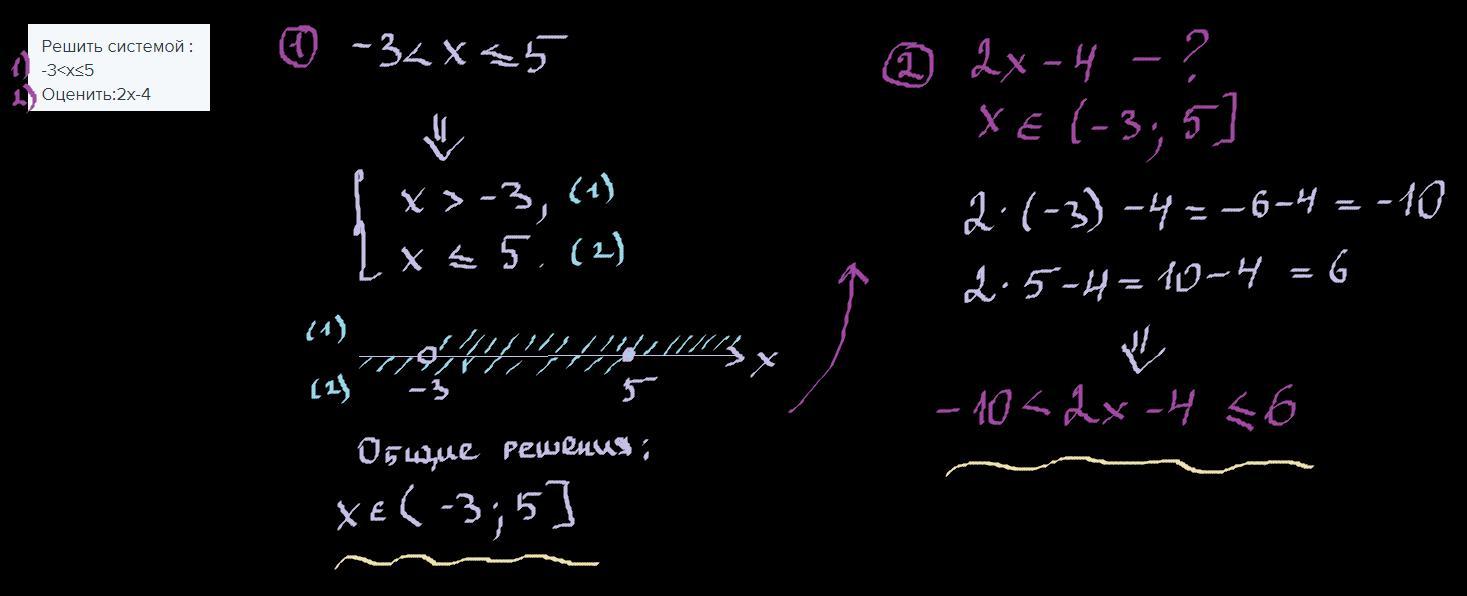 Решить системой :
1) -3<x≤5
2) Оценить:2x-4
① -3 < x ≤ 5
⇓
x > -3, (1)
x ≤ 5. (2)
(1)
x
(2)
-3 5
Общие решения:
x ∈ (-3; 5]
② 2x - 4 - ?
x ∈ (-3; 5]
2 · (-3) - 4 = -6 - 4 = -10
2 · 5 - 4 = 10 - 4 = 6
⇓
-10 < 2x - 4 ≤ 6